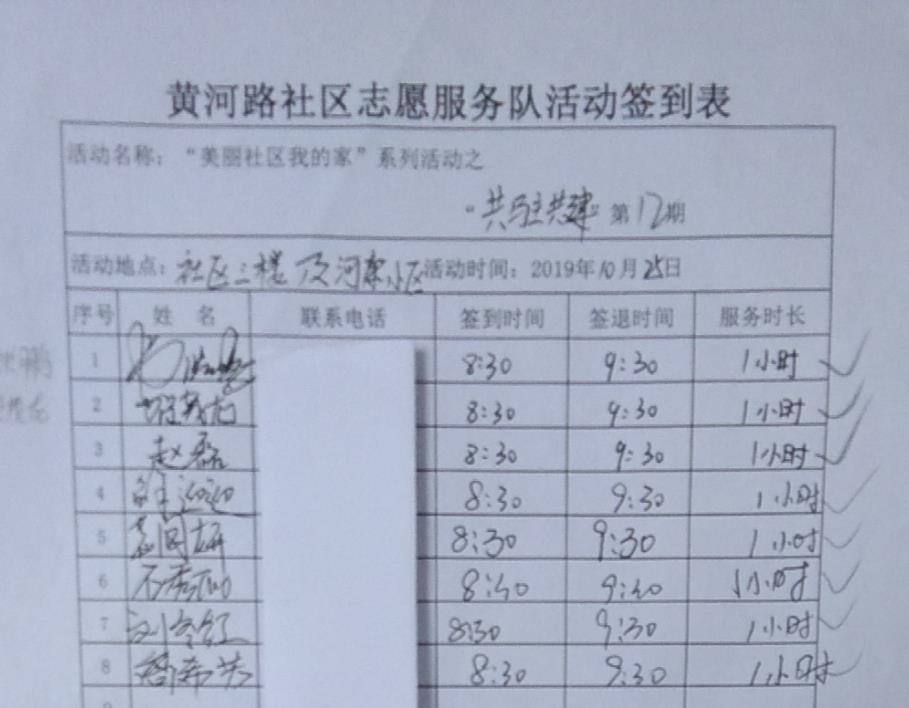 黄河路社区志愿服务队活动签到表
活动名称：“美丽社区我的家”系列活动之
“共驻共建”第12期
活动地点：社区二楼及河家小区 活动时间：2019年10月25日
序号 姓 名 联系电话 签到时间 签退时间 服务时长
1 8:30 9:30 1小时
2 8:30 9:30 1小时
3 赵磊 8:30 9:30 1小时
4 8:30 9:30 1小时
5 8:30 9:30 1小时
6 8:40 9:40 1小时
7 刘冬红 8:30 9:30 1小时
8 8:30 9:30 1小时
9